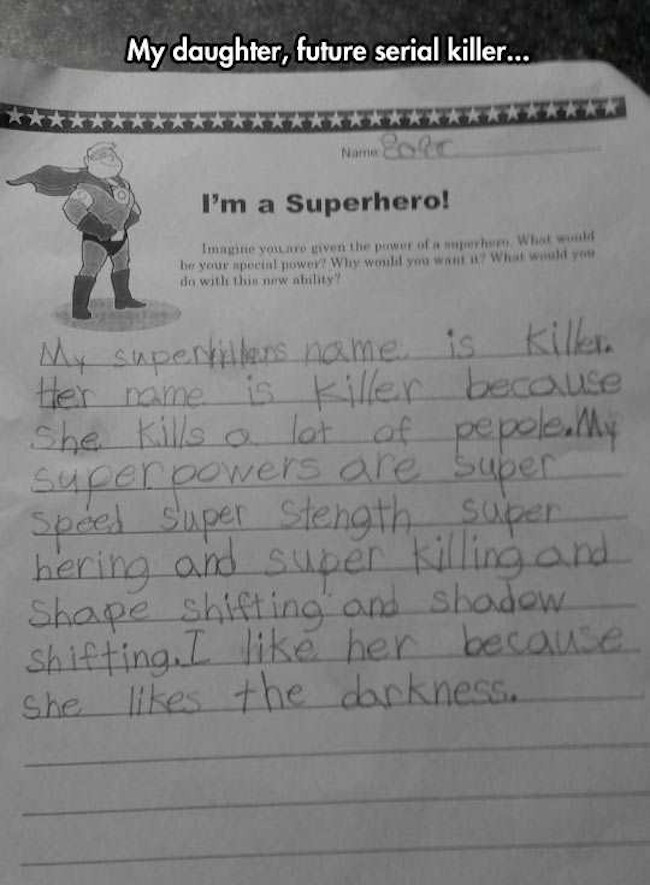 My daughter, future serial killer...
Name
I'm a Superhero!
Imagine you are given the power of a superhero. What would
be your special power? Why would you want it? What would you
do with this new ability?
My superkillers name is Killer.
Her name is Killer because
She Kills a lot of pepole.My
superpowers are super
speed super stength super
hering and super killing and
Shape shifting and shadow
shifting.I like her because
she likes the darkness.